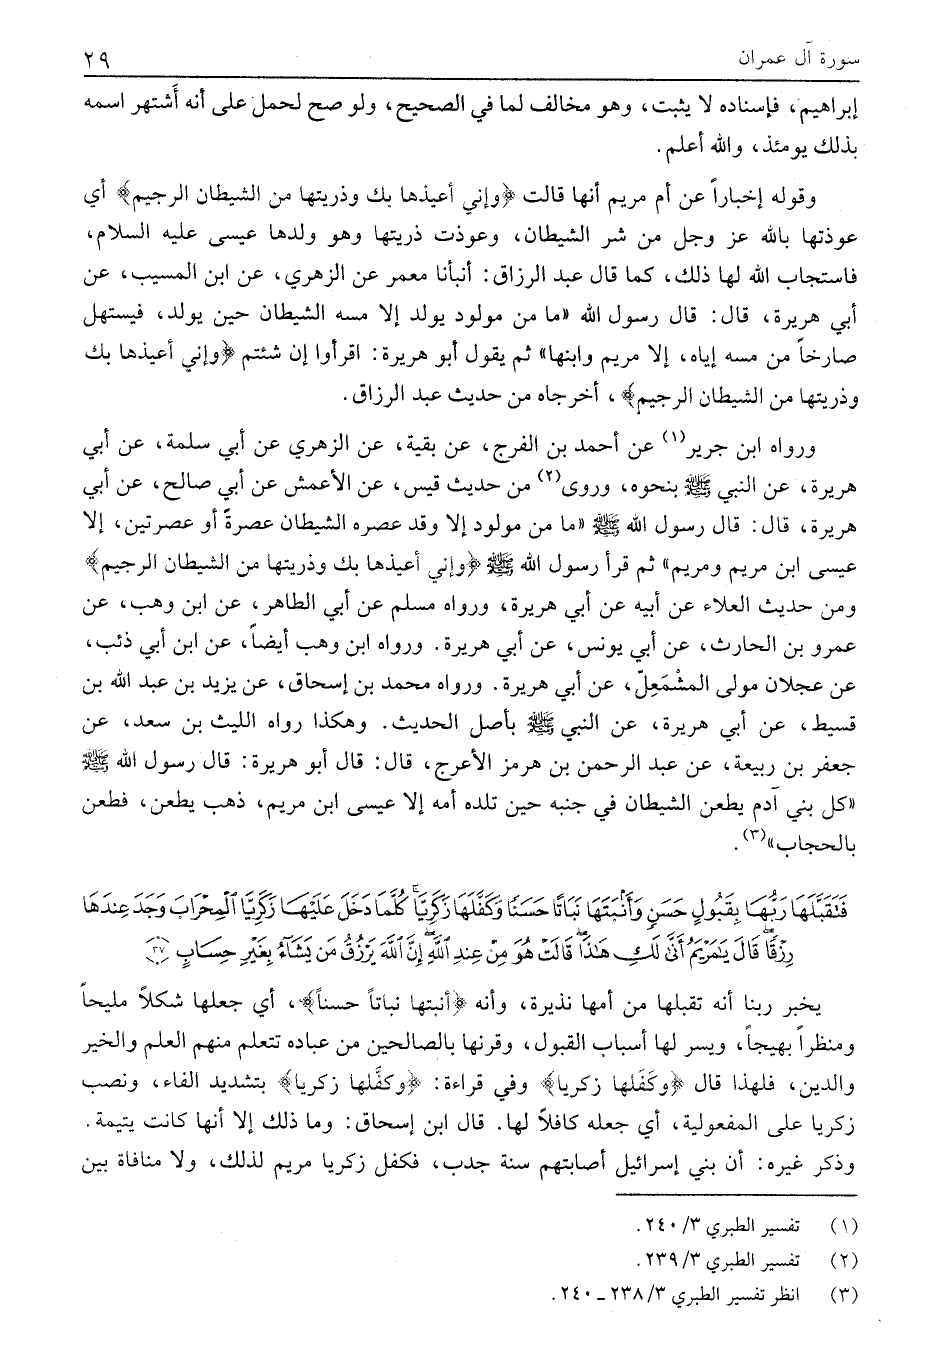 سورة آل عمران
٢٩
إبراهيم، فإسناده لا يثبت، وهو مخالف لما في الصحيح، ولو صح لحمل على أنه أَشتهر اسمه
بذلك يومئذ، والله أعلم.
وقوله إخباراً عن أم مريم أنها قالت ﴿وإني أعيذها بك وذريتها من الشيطان الرجيم﴾ أي
عوذتها بالله عز وجل من شر الشيطان، وعوذت ذريتها وهو ولدها عيسى عليه السلام،
فاستجاب الله لها ذلك، كما قال عبد الرزاق: أنبأنا معمر عن الزهري، عن ابن المسيب، عن
أبي هريرة، قال: قال رسول الله «ما من مولود يولد إلا مسه الشيطان حين يولد، فيستهل
صارخاً من مسه إياه، إلا مريم وابنها» ثم يقول أبو هريرة: اقرأوا إن شئتم ﴿وإني أعيذها بك
وذريتها من الشيطان الرجيم﴾، أخرجاه من حديث عبد الرزاق.
ورواه ابن جرير(١) عن أحمد بن الفرج، عن بقية، عن الزهري عن أبي سلمة، عن أبي
هريرة، عن النبي ﷺ بنحوه، وروى(٢) من حديث قيس، عن الأعمش عن أبي صالح، عن أبي
هريرة، قال: قال رسول الله ﷺ «ما من مولود إلا وقد عصره الشيطان عصرةً أو عصرتين، إلا
عيسى ابن مريم ومريم» ثم قرأ رسول الله ﷺ ﴿وإني أعيذها بك وذريتها من الشيطان الرجيم﴾
ومن حديث العلاء عن أبيه عن أبي هريرة، ورواه مسلم عن أبي الطاهر، عن ابن وهب، عن
عمرو بن الحارث، عن أبي يونس، عن أبي هريرة. ورواه ابن وهب أيضاً، عن ابن أبي ذئب،
عن عجلان مولى المشْمَعِلّ، عن أبي هريرة. ورواه محمد بن إسحاق، عن يزيد بن عبد الله بن
قسيط، عن أبي هريرة، عن النبي ﷺ بأصل الحديث. وهكذا رواه الليث بن سعد، عن
جعفر بن ربيعة، عن عبد الرحمن بن هرمز الأعرج، قال: قال أبو هريرة: قال رسول الله ﷺ
«كل بني آدم يطعن الشيطان في جنبه حين تلده أمه إلا عيسى ابن مريم، ذهب يطعن، فطعن
بالحجاب»(٣).
فَتَقَبَّلَهَا رَبُّهَا بِقَبُولٍ حَسَنٍ وَأَنۢبَتَهَا نَبَاتًا حَسَنًا وَكَفَّلَهَا زَكَرِيَّاۖ كُلَّمَا دَخَلَ عَلَيْهَا زَكَرِيَّا ٱلْمِحْرَابَ وَجَدَ عِندَهَا
رِزْقًاۖ قَالَ يَٰمَرْيَمُ أَنَّىٰ لَكِ هَٰذَاۖ قَالَتْ هُوَ مِنْ عِندِ ٱللَّهِۖ إِنَّ ٱللَّهَ يَرْزُقُ مَن يَشَآءُ بِغَيْرِ حِسَابٍ ﴿٣٧﴾
يخبر ربنا أنه تقبلها من أمها نذيرة، وأنه ﴿أنبتها نباتاً حسناً﴾، أي جعلها شكلاً مليحاً
ومنظراً بهيجاً، ويسر لها أسباب القبول، وقرنها بالصالحين من عباده تتعلم منهم العلم والخير
والدين، فلهذا قال ﴿وكَفَلها زكريا﴾ وفي قراءة: ﴿وكفَّلها زكريا﴾ بتشديد الفاء، ونصب
زكريا على المفعولية، أي جعله كافلاً لها. قال ابن إسحاق: وما ذلك إلا أنها كانت يتيمة.
وذكر غيره: أن بني إسرائيل أصابتهم سنة جدب، فكفل زكريا مريم لذلك، ولا منافاة بين
(١) تفسير الطبري ٣/ ٢٤٠.
(٢) تفسير الطبري ٣/ ٢٣٩.
(٣) انظر تفسير الطبري ٣/ ٢٣٨ - ٢٤٠.